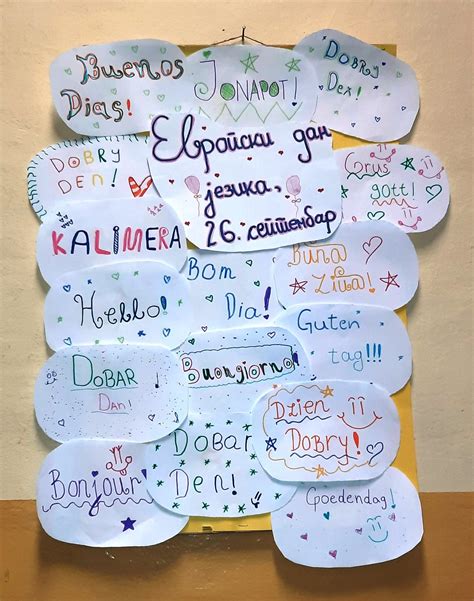 Buenos
Dias!
JONAPOT!
DOBRY
DEN!
Европски дан
језика,
26. септембар
DOBRY
DEN!
Grus
gott!
KALIMERA
BOM
DIA!
BUNA
ZIUA!
Hello!
Guten
tag!!!
DOBAR
DAN!
Buongiorno!
Dzien
Dobry!
Bonjour!
DOBAR
DEN!
GOEDENDAG!